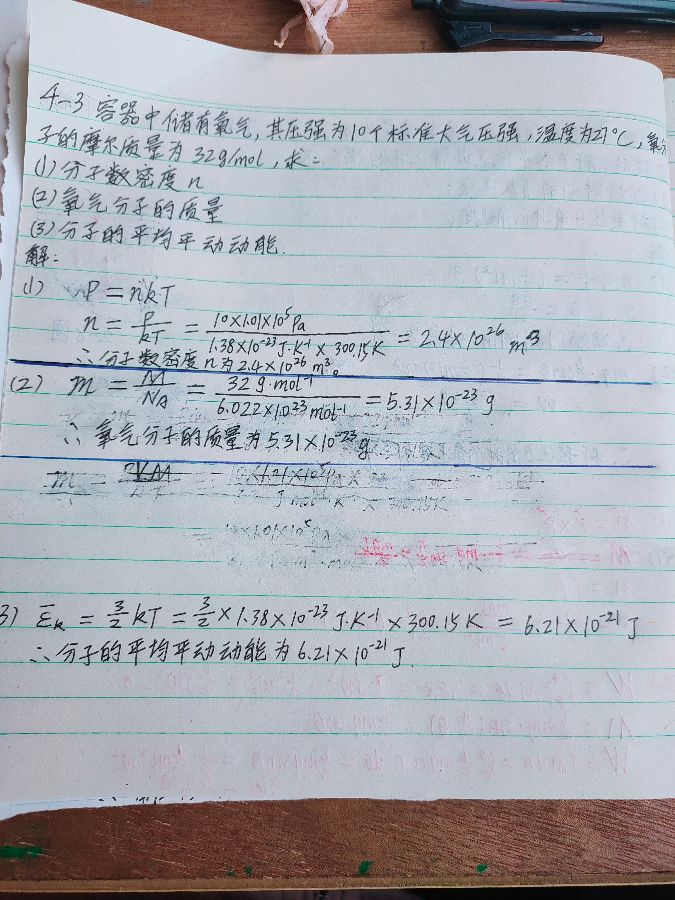 4-3 容器中储有氧气,其压强为10个标准大气压强,温度为27°C,氧分
子的摩尔质量为32g/mol,求:
(1)分子数密度n
(2)氧气分子的质量
(3)分子的平均平动动能.
解:
(1) P=nkT
n = P/kT = 10×1.01×10⁵Pa / 1.38×10⁻²³J·K⁻¹×300.15K = 2.4×10²⁶ m⁻³
∴分子数密度n为2.4×10²⁶ m³。
(2) m = M/NA = 32g·mol⁻¹ / 6.022×10²³mol⁻¹ = 5.31×10⁻²³ g
∴ 氧气分子的质量为5.31×10⁻²³g
3) ε̄k = 3/2 kT = 3/2 ×1.38×10⁻²³ J·K⁻¹ ×300.15K = 6.21×10⁻²¹J
∴分子的平均平动动能为6.21×10⁻²¹J.